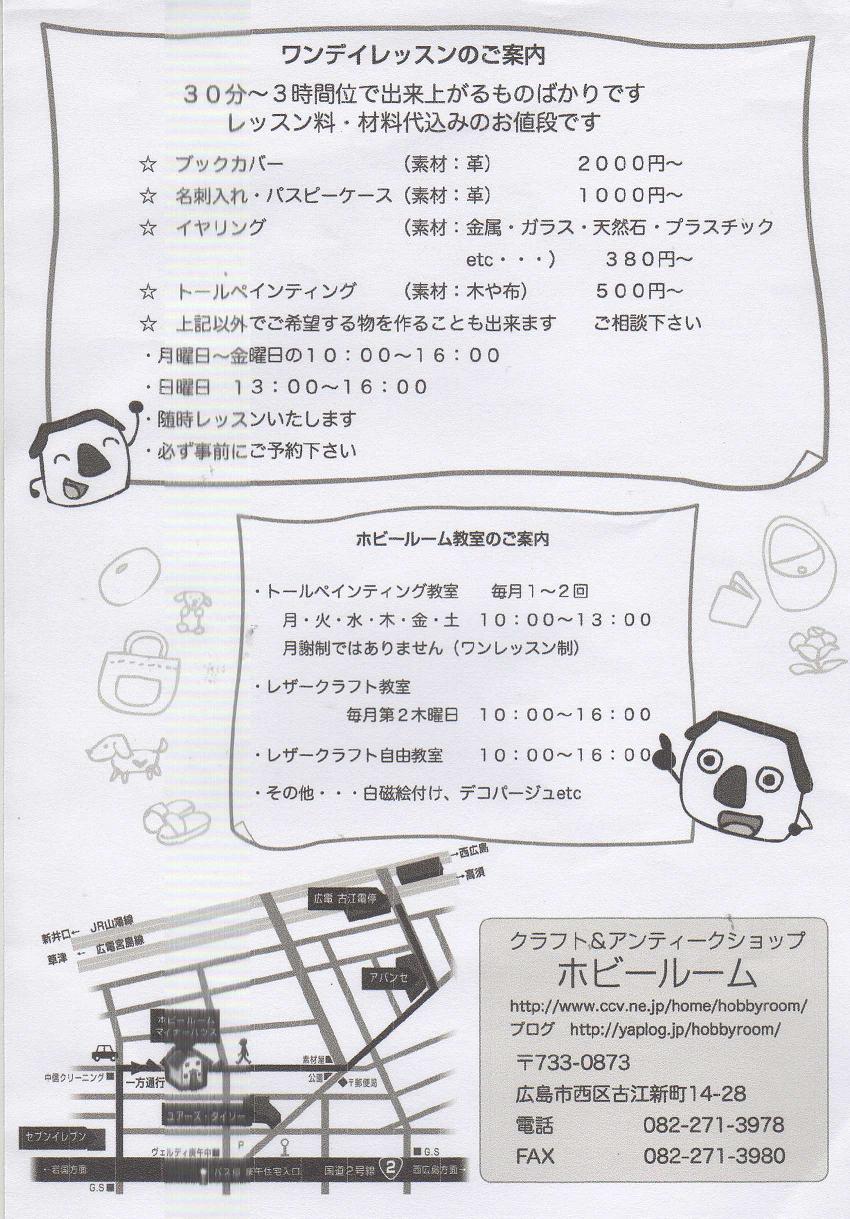 ワンデイレッスンのご案内
３０分～３時間位で出来上がるものばかりです
レッスン料・材料代込みのお値段です
☆ ブックカバー （素材：革） ２０００円～
☆ 名刺入れ・パスピーケース （素材：革） １０００円～
☆ イヤリング （素材：金属・ガラス・天然石・プラスチック
etc・・・） ３８０円～
☆ トールペインティング （素材：木や布） ５００円～
☆ 上記以外でご希望する物を作ることも出来ます ご相談下さい
・月曜日～金曜日の１０：００～１６：００
・日曜日 １３：００～１６：００
・随時レッスンいたします
・必ず事前にご予約下さい
ホビールーム教室のご案内
・トールペインティング教室 毎月１～２回
月・火・水・木・金・土 １０：００～１３：００
月謝制ではありません（ワンレッスン制）
・レザークラフト教室
毎月第２木曜日 １０：００～１６：００
・レザークラフト自由教室 １０：００～１６：００
・その他・・・白磁絵付け、デコパージュetc
→西広島
→高須
広電 古江電停
新井口← JR山陽線
草津 ← 広電宮島線
アバンセ
ホビールーム
マイナーハウス
素材屋
中信クリーニング
一方通行
公園
〒郵便局
ユアーズ・ダイソー
セブンイレブン
ヴェルディ庚午中
P
G.S
←岩国方面
バス停 庚午住宅入口
国道２号線
2
西広島方面→
G.S
クラフト＆アンティークショップ
ホビールーム
http://www.ccv.ne.jp/home/hobbyroom/
ブログ http://yaplog.jp/hobbyroom/
〒733-0873
広島市西区古江新町14-28
電話 082-271-3978
FAX 082-271-3980